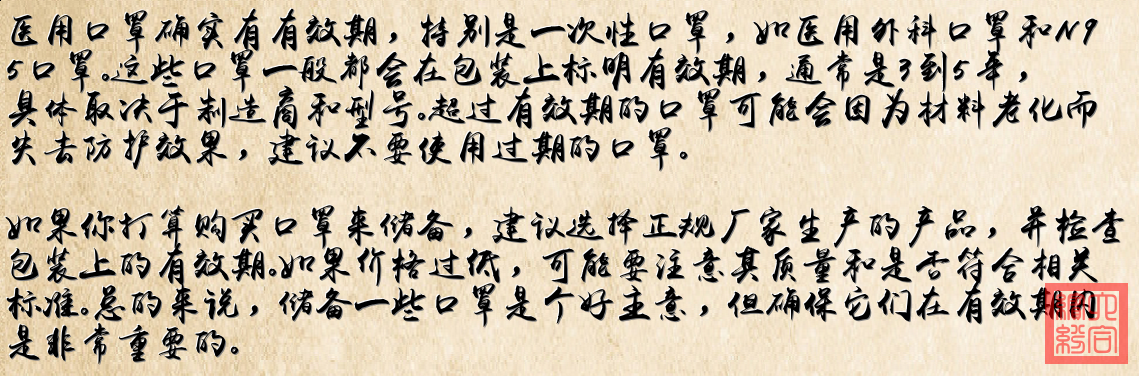 医用口罩确实有有效期，特别是一次性口罩，如医用外科口罩和N9
5口罩。这些口罩一般都会在包装上标明有效期，通常是3到5年，
具体取决于制造商和型号。超过有效期的口罩可能会因为材料老化而
失去防护效果，建议不要使用过期的口罩。
如果你打算购买口罩来储备，建议选择正规厂家生产的产品，并检查
包装上的有效期。如果价格过低，可能要注意其质量和是否符合相关
标准。总的来说，储备一些口罩是个好主意，但确保它们在有效期内
是非常重要的。